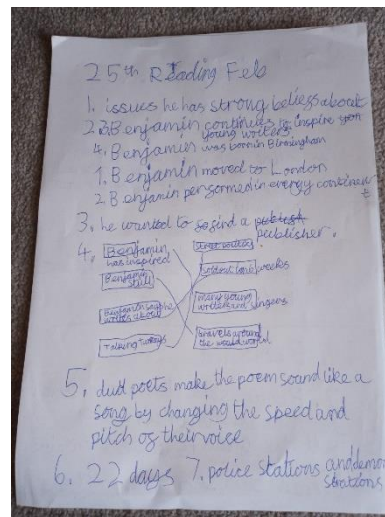 25th Reading Feb
1. issues he has strong beliefs about
2. 3 Benjamin continues to inspire
young writers.
4. Benjamin was born in Birmingham
1. Benjamin moved to London
2 Benjamin performed in every continent
3. he wanted to find a
publisher.
4. Benjamin
has inspired
Benjamin
still
writes about
Talking turkeys
many young
writers and singers
travels around
the world
5. dud poets make the poem sound like a
song by changing the speed and
pitch of their voice
6. 22 days 7. police stations and demon
strations